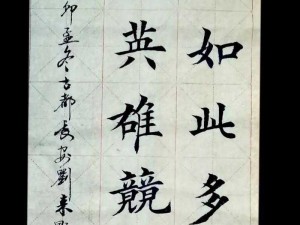 如此多
英雄競
卯孟冬古都長安劉来